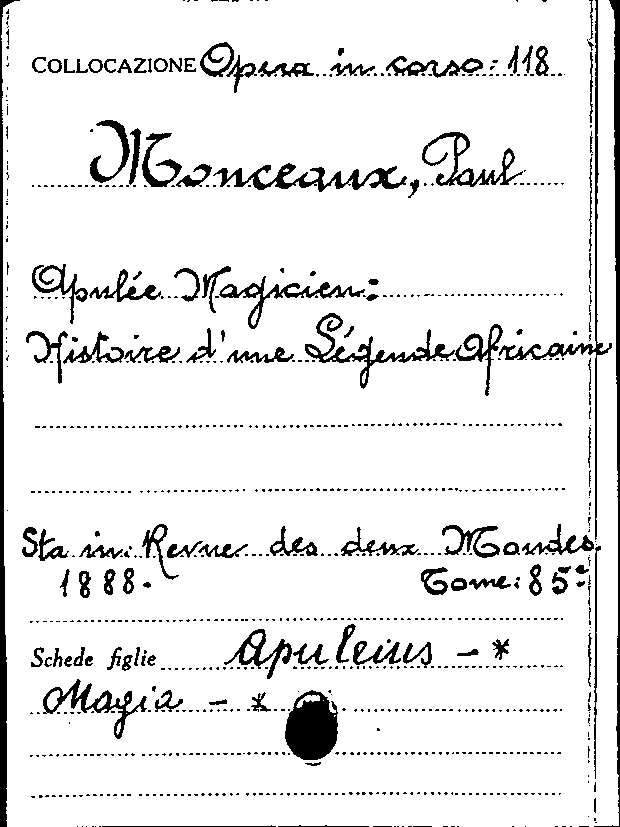 COLLOCAZIONE Opera in corso: 118
Monceaux, Paul
Apulée Magicien:
Histoire d'une Légende Africaine
Sta in: Revue des deux Mondes.
1888. Tome: 85e
Schede figlie Apuleius - *
Magia - *